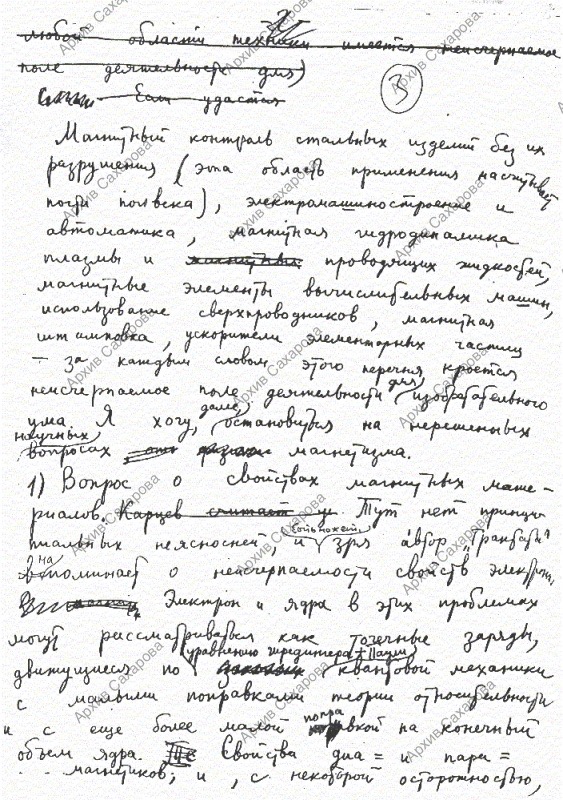 любой области техники имеется неисчерпаемое
поле деятельности для)
3
Если удастся
Магнитный контроль стальных изделий без их
разрушения (эта область применения насчитывает
почти полвека), электромашиностроение и
автоматика, магнитная гидродинамика
плазмы и магнитные проводящих жидкостей,
магнитные элементы вычислительных машин,
использование сверхпроводников, магнитная
штамповка, ускорители элементарных частиц
– за каждым словом этого перечня кроется
неисчерпаемое поле деятельности для изобретательного
ума. Я хочу, далее, остановиться на нерешенных
научных
вопросах магнетизма.
1) Вопрос о свойствах магнитных мате-
риалов. Карцев считает и Тут нет принци-
пиальных неясностей и зря автор „Трактата"
напоминает о неисчерпаемости свойств электрона.
Электрон и ядра в этих проблемах
могут рассматриваться как точечные заряды,
уравнению Шредингера + Паули
движущиеся по квантовой механики
с малыми поправками теории относительности
и с еще более малой поправкой на конечный
объем ядра. Свойства диа= и пара=
магнетиков; и, с некоторой осторожностью,
Архив Сахарова